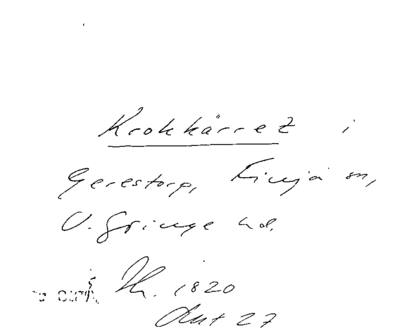 Krokkärret i
Gerestorp, Finja sn,
V. Göinge hd.
Th. 1820
Akt 27